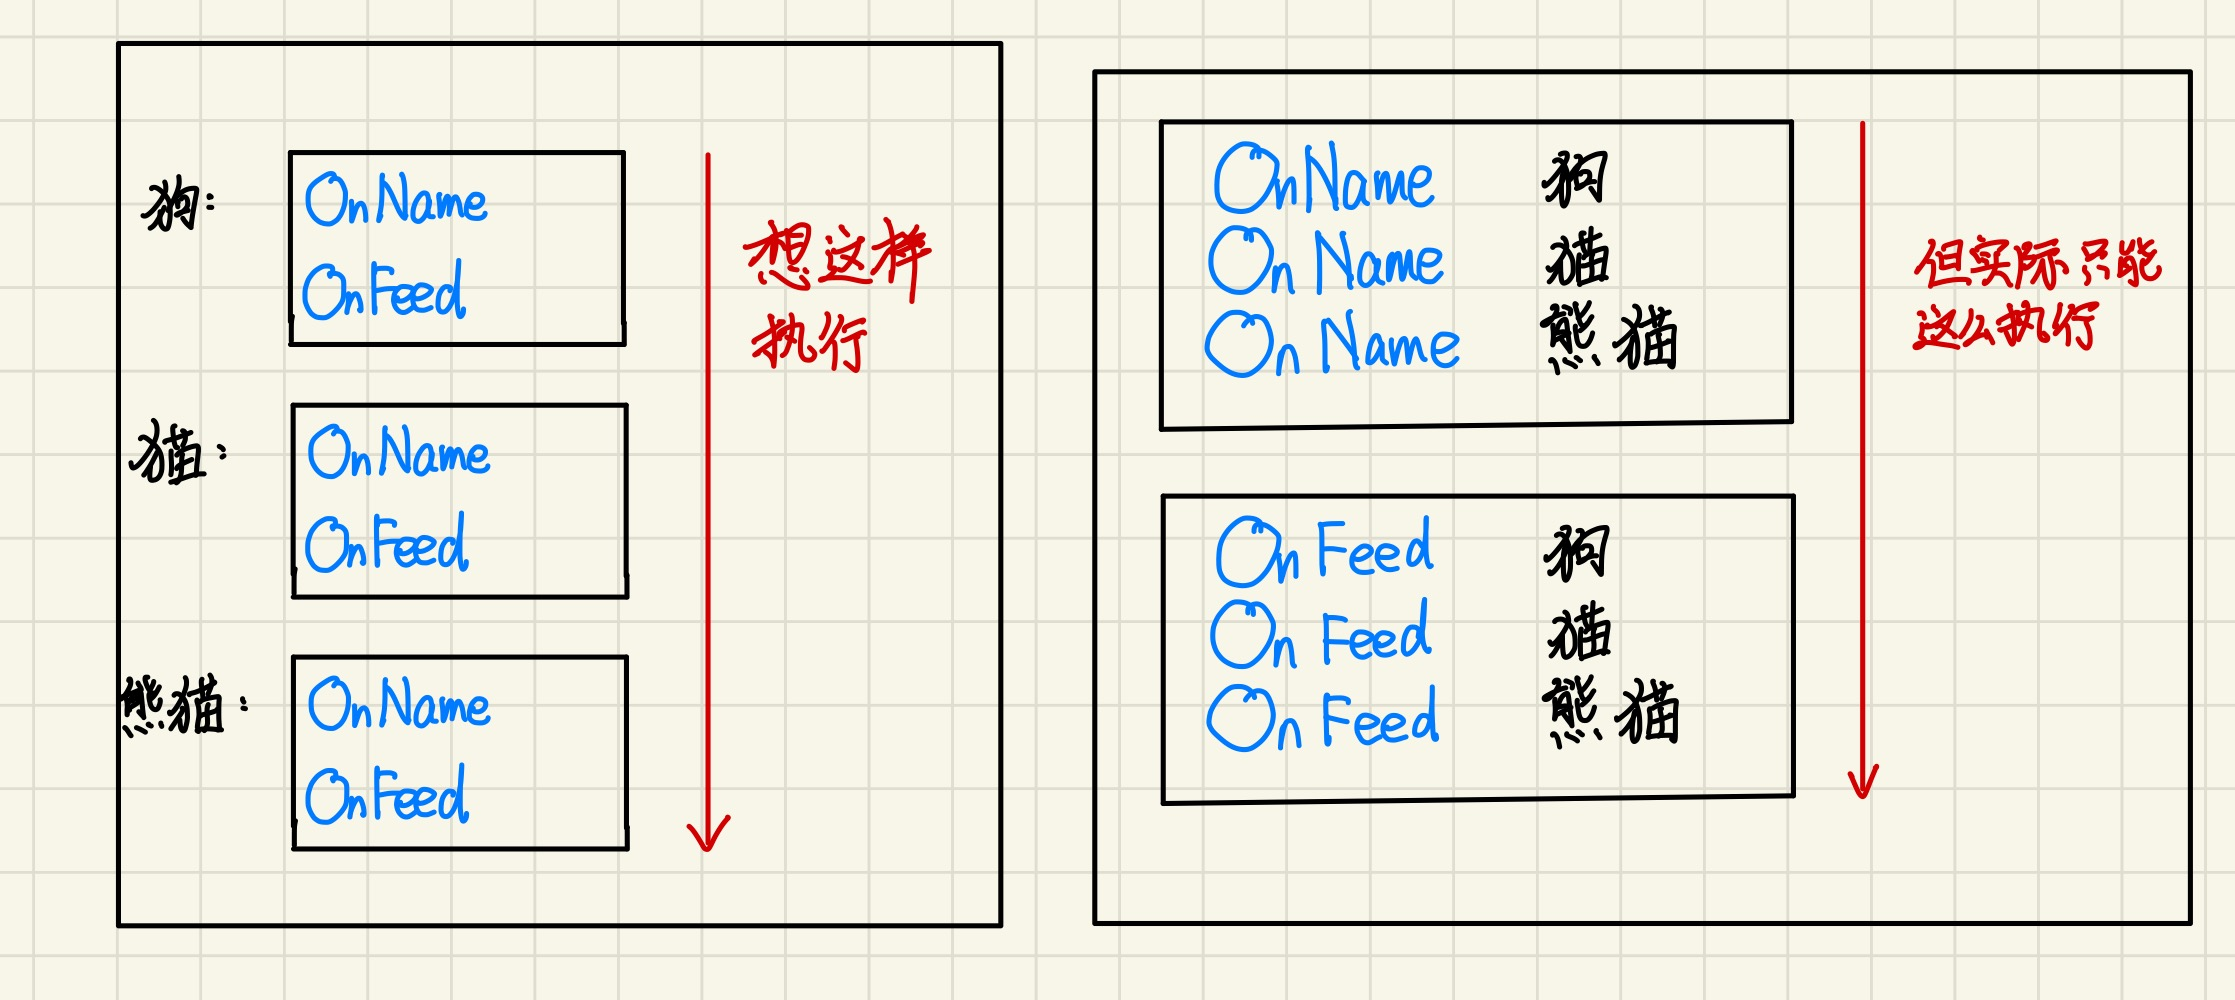 狗：
OnName
OnFeed
猫：
OnName
OnFeed
熊猫：
OnName
OnFeed
想这样
执行
OnName 狗
OnName 猫
OnName 熊猫
OnFeed 狗
OnFeed 猫
OnFeed 熊猫
但实际只能
这么执行